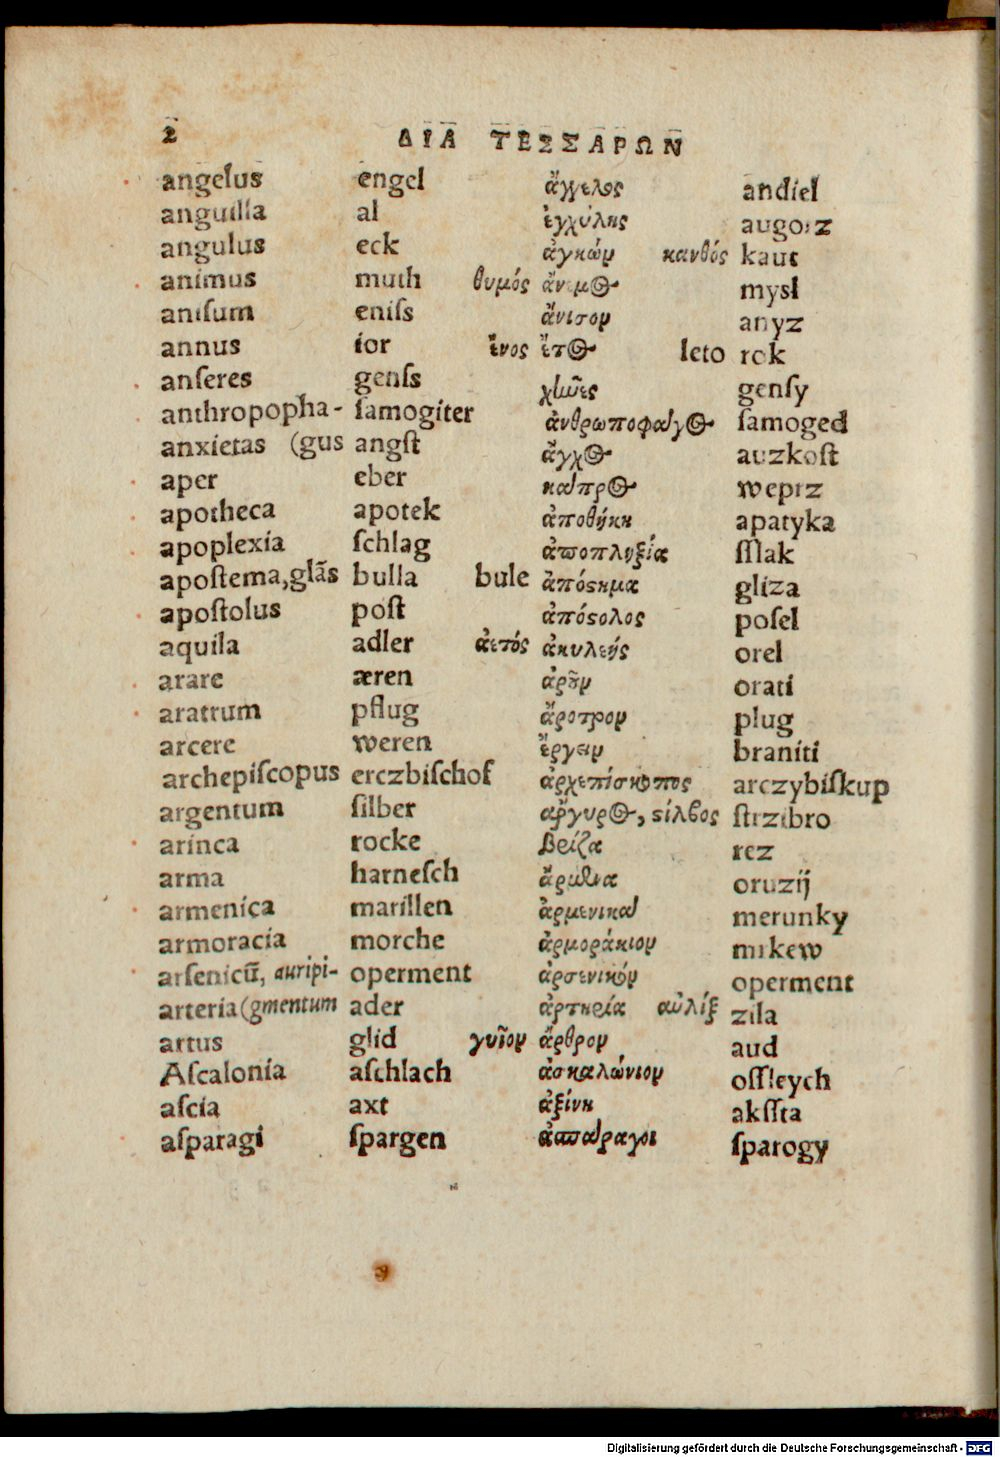 2 ΔΙΑ ΤΕΣΣΑΡΩΝ
angelus engel ἄγγελος andiel
anguilla al ἐγχύλης augorz
angulus eck ἀγκών κανθός kaut
animus muth θυμός ἄνεμος mysl
anisum eniſs ἄνισον anyz
annus ior ἔνος ἔτος leto rok
anſeres genſs χῆνες genſy
anthropopha- ſamogiter ἀνθρωποφάγος ſamoged
anxietas (gus angſt ἄγχος auzkoſt
aper eber κάπρος weprz
apotheca apotek ἀποθήκη apatyka
apoplexia ſchlag ἀποπληξία ſſlak
apoſtema, glãs bulla bule ἀπόστημα gliza
apoſtolus poſt ἀπόστολος poſel
aquila adler ἀετός ἀκυλεής orel
arare æren ἀροῦν orati
aratrum pflug ἄροτρον plug
arcere weren ἔργειν braniti
archepiſcopus erczbiſchof ἀρχεπίσκοπος arczybiſkup
argentum ſilber ἄργυρος, σίλβος ſtrzibro
arinca rocke βρίζα rez
arma harneſch ἄρματα oruzij
armenica marillen ἀρμενικά merunky
armoracia morche ἀρμοράκιον mrkew
arſenicũ, auripi- operment ἀρσενικόν operment
arteria (gmentum ader ἀρτηρία αὖλιξ zila
artus glid γυῖον ἄρθρον aud
Aſcalonia aſchlach ἀσκαλώνιον oſſleych
aſcia axt ἀξίνη akſſta
aſparagi ſpargen ἀσπάραγοι ſparogy
Digitalisierung gefördert durch die Deutsche Forschungsgemeinschaft - DFG